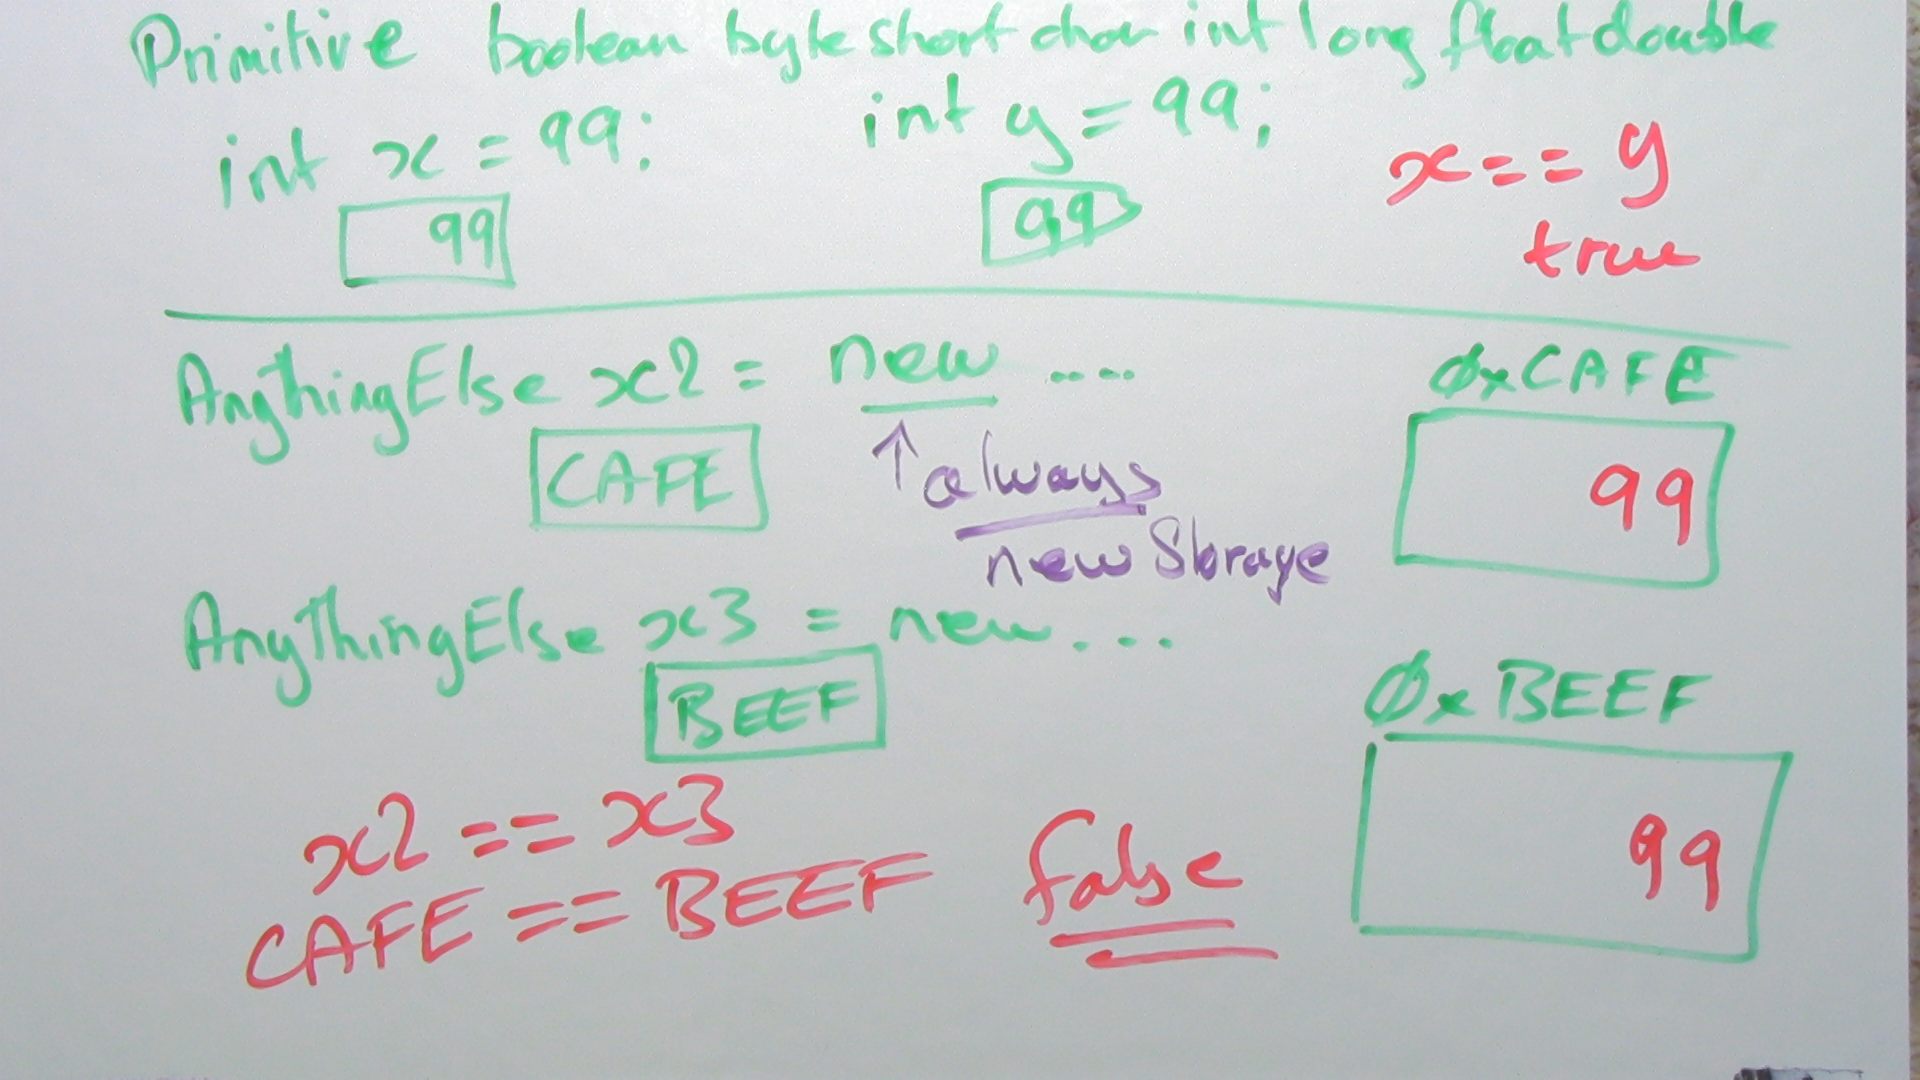 Primitive boolean byte short char int long float double
int x = 99; int y = 99;
x == y
99 99
true
AnythingElse x2 = new ....
0xCAFE
CAFE
↑ always
99
new Storage
AnythingElse x3 = new ...
0xBEEF
BEEF
x2 == x3
CAFE == BEEF false
99